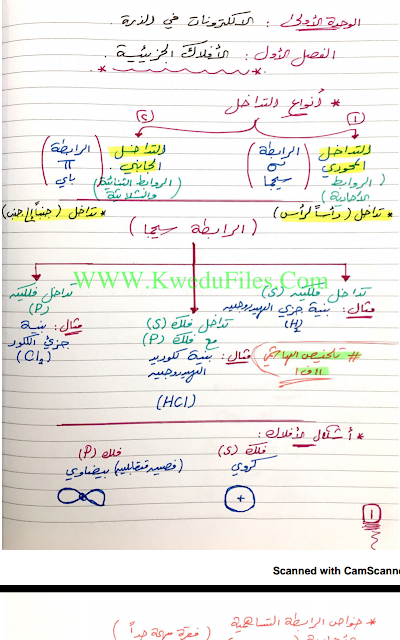 الوحدة الأولى : الالكترونات في الذرة
الفصل الأول : الأفلاك الجزيئية
* أنواع التداخل
١
٢
التداخل المحوري
الرابطة سيجما
(الروابط الأحادية)
التداخل الجانبي
الرابطة π باي
(الروابط الثنائية والثلاثية)
* تداخل (رأساً لرأس)
* تداخل (جنباً إلى جنب)
(الرابطة سيجما)
WWW.KweduFiles.Com
تداخل فلكين (S)
مثال: بنية جزئ الهيدروجين
(H₂)
تداخل فلك (S)
مع فلك (P)
مثال: بنية كلوريد
الهيدروجين
(HCl)
تداخل فلكين
(P)
مثال: بنية
جزئ الكلور
(Cl₂)
# تلخيص
* أشكال الأفلاك:
فلك (S)
كروي
+
فلك (P)
(فصين متقابلين) بيضاوي
١
Scanned with CamScanne
* خواص الرابطة التساهمية
(فقرة مهمة جداً)